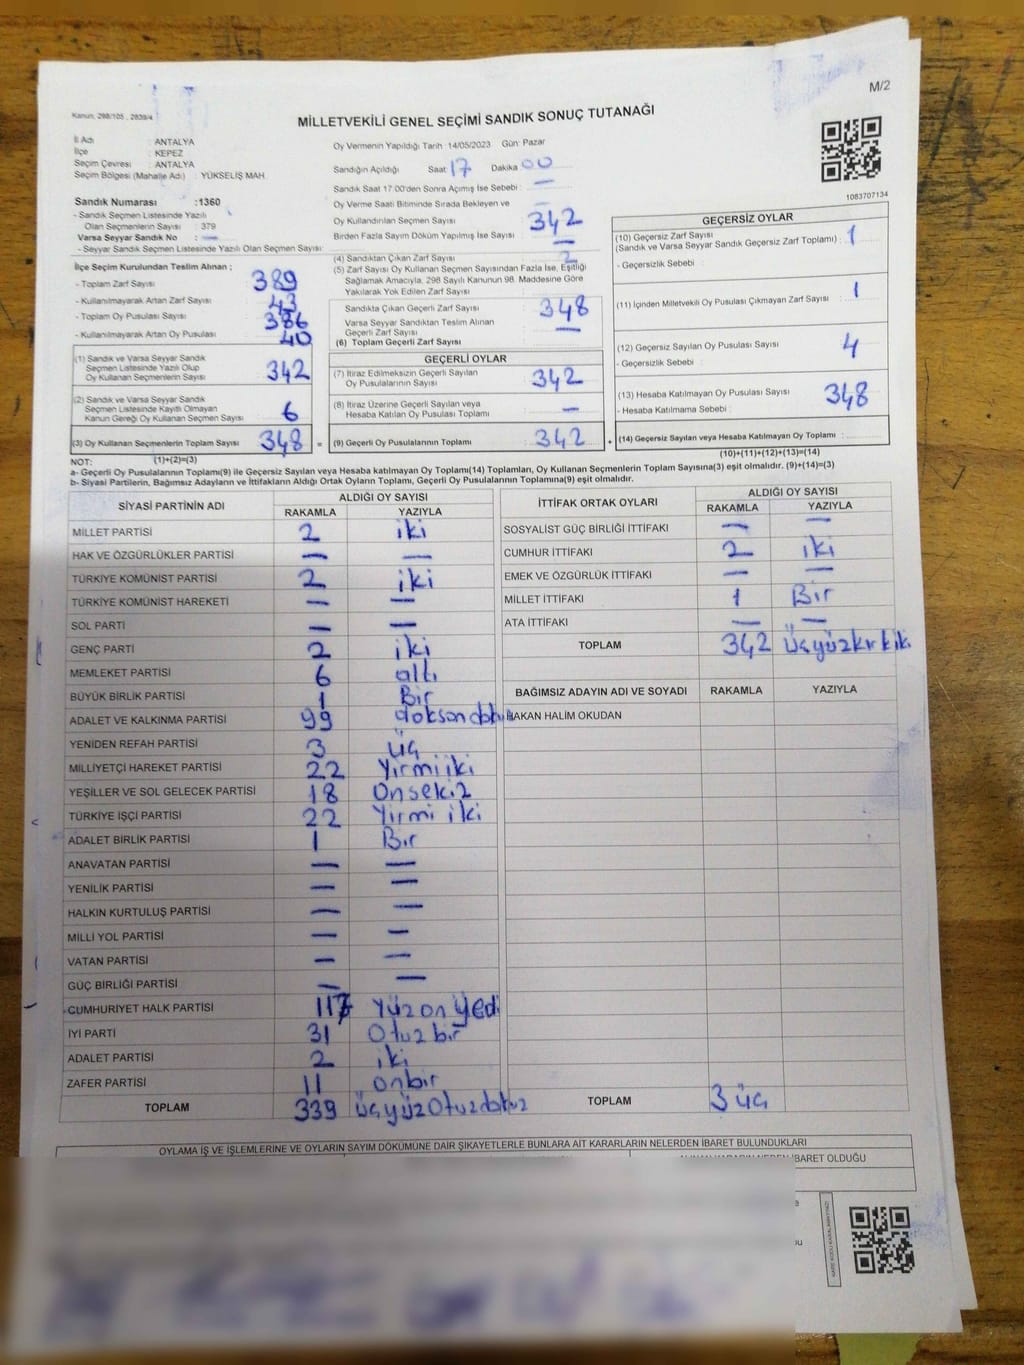 M/2
Kanun, 298/105 , 2839/4
MİLLETVEKİLİ GENEL SEÇİMİ SANDIK SONUÇ TUTANAĞI
İl Adı : ANTALYA
İlçe : KEPEZ
Seçim Çevresi : ANTALYA
Seçim Bölgesi (Mahalle Adı) : YÜKSELİŞ MAH.
Sandık Numarası :1360
- Sandık Seçmen Listesinde Yazılı
Olan Seçmenlerin Sayısı : 379
Varsa Seyyar Sandık No : —
- Seyyar Sandık Seçmen Listesinde Yazılı Olan Seçmen Sayısı:
Oy Vermenin Yapıldığı Tarih :14/05/2023 Gün: Pazar
Sandığın Açıldığı Saat 17 Dakika 00
Sandık Saat 17:00'den Sonra Açılmış İse Sebebi : —
Oy Verme Saati Bitiminde Sırada Bekleyen ve
Oy Kullandırılan Seçmen Sayısı : 342
Birden Fazla Sayım Döküm Yapılmış İse Sayısı : —
1083707134
İlçe Seçim Kurulundan Teslim Alınan ;
- Toplam Zarf Sayısı : 389
- Kullanılmayarak Artan Zarf Sayısı : 43
- Toplam Oy Pusulası Sayısı : 386
- Kullanılmayarak Artan Oy Pusulası : 40
(1) Sandık ve Varsa Seyyar Sandık
Seçmen Listesinde Yazılı Olup
Oy Kullanan Seçmenlerin Sayısı : 342
(2) Sandık ve Varsa Seyyar Sandık
Seçmen Listesinde Kayıtlı Olmayan
Kanun Gereği Oy Kullanan Seçmen Sayısı : 6
(3) Oy Kullanan Seçmenlerin Toplam Sayısı : 348 =
(1)+(2)=(3)
(4) Sandıktan Çıkan Zarf Sayısı : 2
(5) Zarf Sayısı Oy Kullanan Seçmen Sayısından Fazla İse, Eşitliği
Sağlamak Amacıyla, 298 Sayılı Kanunun 98. Maddesine Göre
Yakılarak Yok Edilen Zarf Sayısı :
Sandıkta Çıkan Geçerli Zarf Sayısı : 348
Varsa Seyyar Sandıktan Teslim Alınan
Geçerli Zarf Sayısı : —
(6) Toplam Geçerli Zarf Sayısı :
GEÇERLİ OYLAR
(7) İtiraz Edilmeksizin Geçerli Sayılan
Oy Pusulalarının Sayısı : 342
(8) İtiraz Üzerine Geçerli Sayılan veya
Hesaba Katılan Oy Pusulası Toplamı : —
(9) Geçerli Oy Pusulalarının Toplamı : 342 +
GEÇERSİZ OYLAR
(10) Geçersiz Zarf Sayısı
(Sandık ve Varsa Seyyar Sandık Geçersiz Zarf Toplamı) : 1
- Geçersizlik Sebebi :
(11) İçinden Milletvekili Oy Pusulası Çıkmayan Zarf Sayısı : 1
(12) Geçersiz Sayılan Oy Pusulası Sayısı : 4
- Geçersizlik Sebebi :
(13) Hesaba Katılmayan Oy Pusulası Sayısı : 348
- Hesaba Katılmama Sebebi :
(14) Geçersiz Sayılan veya Hesaba Katılmayan Oy Pusulası Toplamı :
(10)+(11)+(12)+(13)=(14)
NOT:
a- Geçerli Oy Pusulalarının Toplamı(9) ile Geçersiz Sayılan veya Hesaba katılmayan Oy Toplamı(14) Toplamları, Oy Kullanan Seçmenlerin Toplam Sayısına(3) eşit olmalıdır. (9)+(14)=(3)
b- Siyasi Partilerin, Bağımsız Adayların ve İttifakların Aldığı Ortak Oyların Toplamı, Geçerli Oy Pusulalarının Toplamına(9) eşit olmalıdır.
SİYASİ PARTİNİN ADI ALDIĞI OY SAYISI
RAKAMLA YAZIYLA
MİLLET PARTİSİ 2 iki
HAK VE ÖZGÜRLÜKLER PARTİSİ — —
TÜRKİYE KOMÜNİST PARTİSİ 2 iki
TÜRKİYE KOMÜNİST HAREKETİ — —
SOL PARTİ — —
GENÇ PARTİ 2 iki
MEMLEKET PARTİSİ 6 altı
BÜYÜK BİRLİK PARTİSİ 1 Bir
ADALET VE KALKINMA PARTİSİ 99 doksandokuz
YENİDEN REFAH PARTİSİ 3 üç
MİLLİYETÇİ HAREKET PARTİSİ 22 Yirmiiki
YEŞİLLER VE SOL GELECEK PARTİSİ 18 Onsekiz
TÜRKİYE İŞÇİ PARTİSİ 22 Yirmi iki
ADALET BİRLİK PARTİSİ 1 Bir
ANAVATAN PARTİSİ — —
YENİLİK PARTİSİ — —
HALKIN KURTULUŞ PARTİSİ — —
MİLLİ YOL PARTİSİ — —
VATAN PARTİSİ — —
GÜÇ BİRLİĞİ PARTİSİ — —
CUMHURİYET HALK PARTİSİ 117 Yüz on yedi
İYİ PARTİ 31 Otuz bir
ADALET PARTİSİ 2 iki
ZAFER PARTİSİ 11 onbir
TOPLAM 339 üçyüzOtuzdokuz
İTTİFAK ORTAK OYLARI ALDIĞI OY SAYISI
RAKAMLA YAZIYLA
SOSYALİST GÜÇ BİRLİĞİ İTTİFAKI — —
CUMHUR İTTİFAKI 2 iki
EMEK VE ÖZGÜRLÜK İTTİFAKI — —
MİLLET İTTİFAKI 1 Bir
ATA İTTİFAKI — —
TOPLAM 342 üçyüzkırkiki
BAĞIMSIZ ADAYIN ADI VE SOYADI RAKAMLA YAZIYLA
HAKAN HALİM OKUDAN
TOPLAM 3 üç
OYLAMA İŞ VE İŞLEMLERİNE VE OYLARIN SAYIM DÖKÜMÜNE DAİR ŞİKAYETLERLE BUNLARA AİT KARARLARIN NELERDEN İBARET BULUNDUKLARI
İBARET OLDUĞU